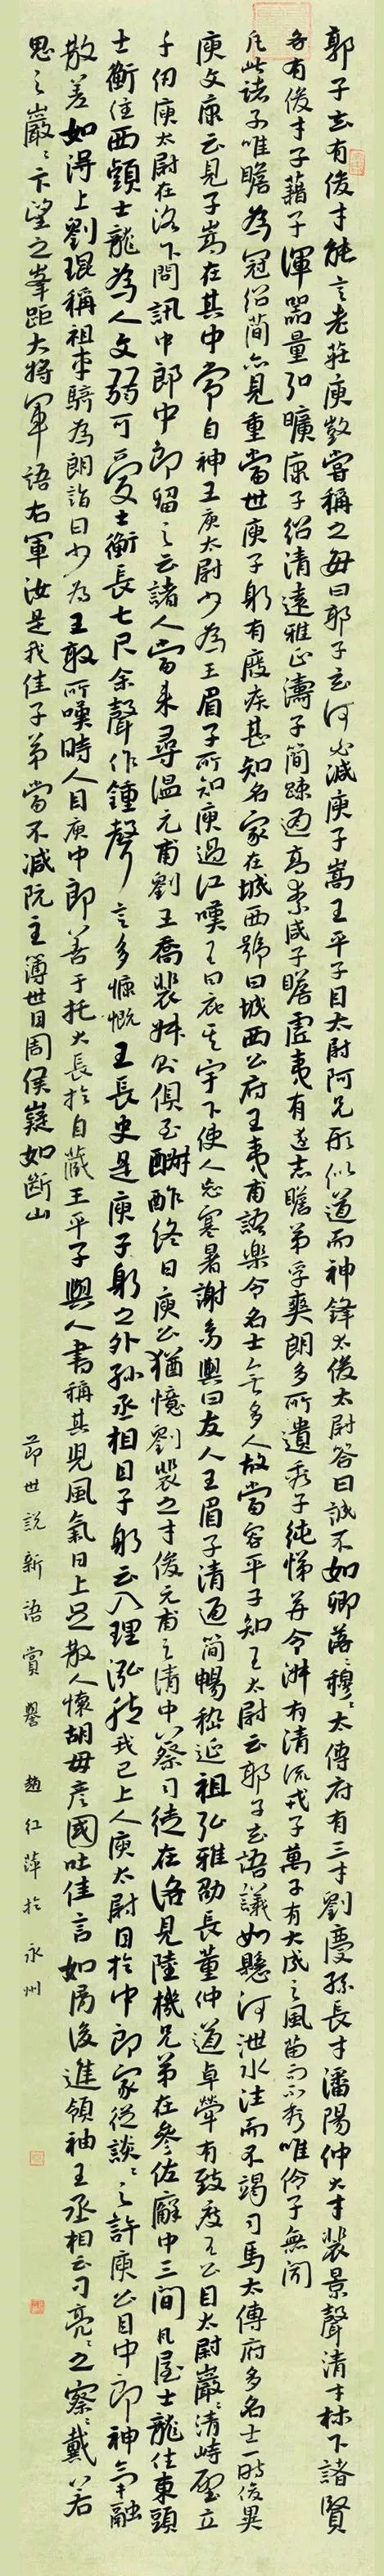 郭子玄有俊才能言老莊庾敳嘗稱之每曰郭子玄何必減庾子嵩王平子目太尉阿兄形似道而神鋒太俊太尉答曰誠不如卿落落穆穆太傅府有三才劉慶孫長才潘陽仲大才裴景聲清才林下諸賢
各有俊才子藉子渾器量弘曠康子紹清遠雅正濤子簡疏通高素咸子瞻虛夷有遠志瞻弟孚爽朗多所遺秀子純悌並令淑有清流戎子萬子有大成之風苗而不秀唯伶子無聞
凡此諸子唯瞻為冠紹簡亦見重當世庾子躬有廢疾甚知名家在城西號曰城西公府王夷甫語樂令名士無多人故當容平子知王太尉云郭子玄語議如懸河泄水注而不竭司馬太傅府多名士一時俊異
庾文康云見子嵩在其中常自神王庾太尉少為王眉子所知庾過江嘆王曰庇其宇下使人忘寒暑謝幼輿曰友人王眉子清通簡暢嵇延祖弘雅劭長董仲道卓犖有致度王公目太尉巖巖清峙壁立
千仞庾太尉在洛下問訊中郎中郎留之云諸人當來尋溫元甫劉王喬裴叔則俱至酬酢終日庾公猶憶劉裴之才俊元甫之清中蔡司徒在洛見陸機兄弟在參佐廨中三間瓦屋士龍住東頭
士衡住西頭士龍為人文弱可愛士衡長七尺余聲作鍾聲言多慷慨王長史是庾子躬之外孫丞相目子躬云入理泓然我已上人庾太尉目於中郎家從談談之許庾公目中郎神氣融
散差如得上劉琨稱祖車騎為朗詣曰少為王敦所嘆時人目庾中郎善于托大長於自藏王平子與人書稱其兒風氣日上足散人懷胡毋彥國吐佳言如屑後進領袖王丞相云刁亮亮之察察戴若
思之巖巖卞望之峯距大將軍語右軍汝是我佳子弟當不減阮主簿世目周侯嶷如斷山
節世說新語賞譽 趙紅萍於永州